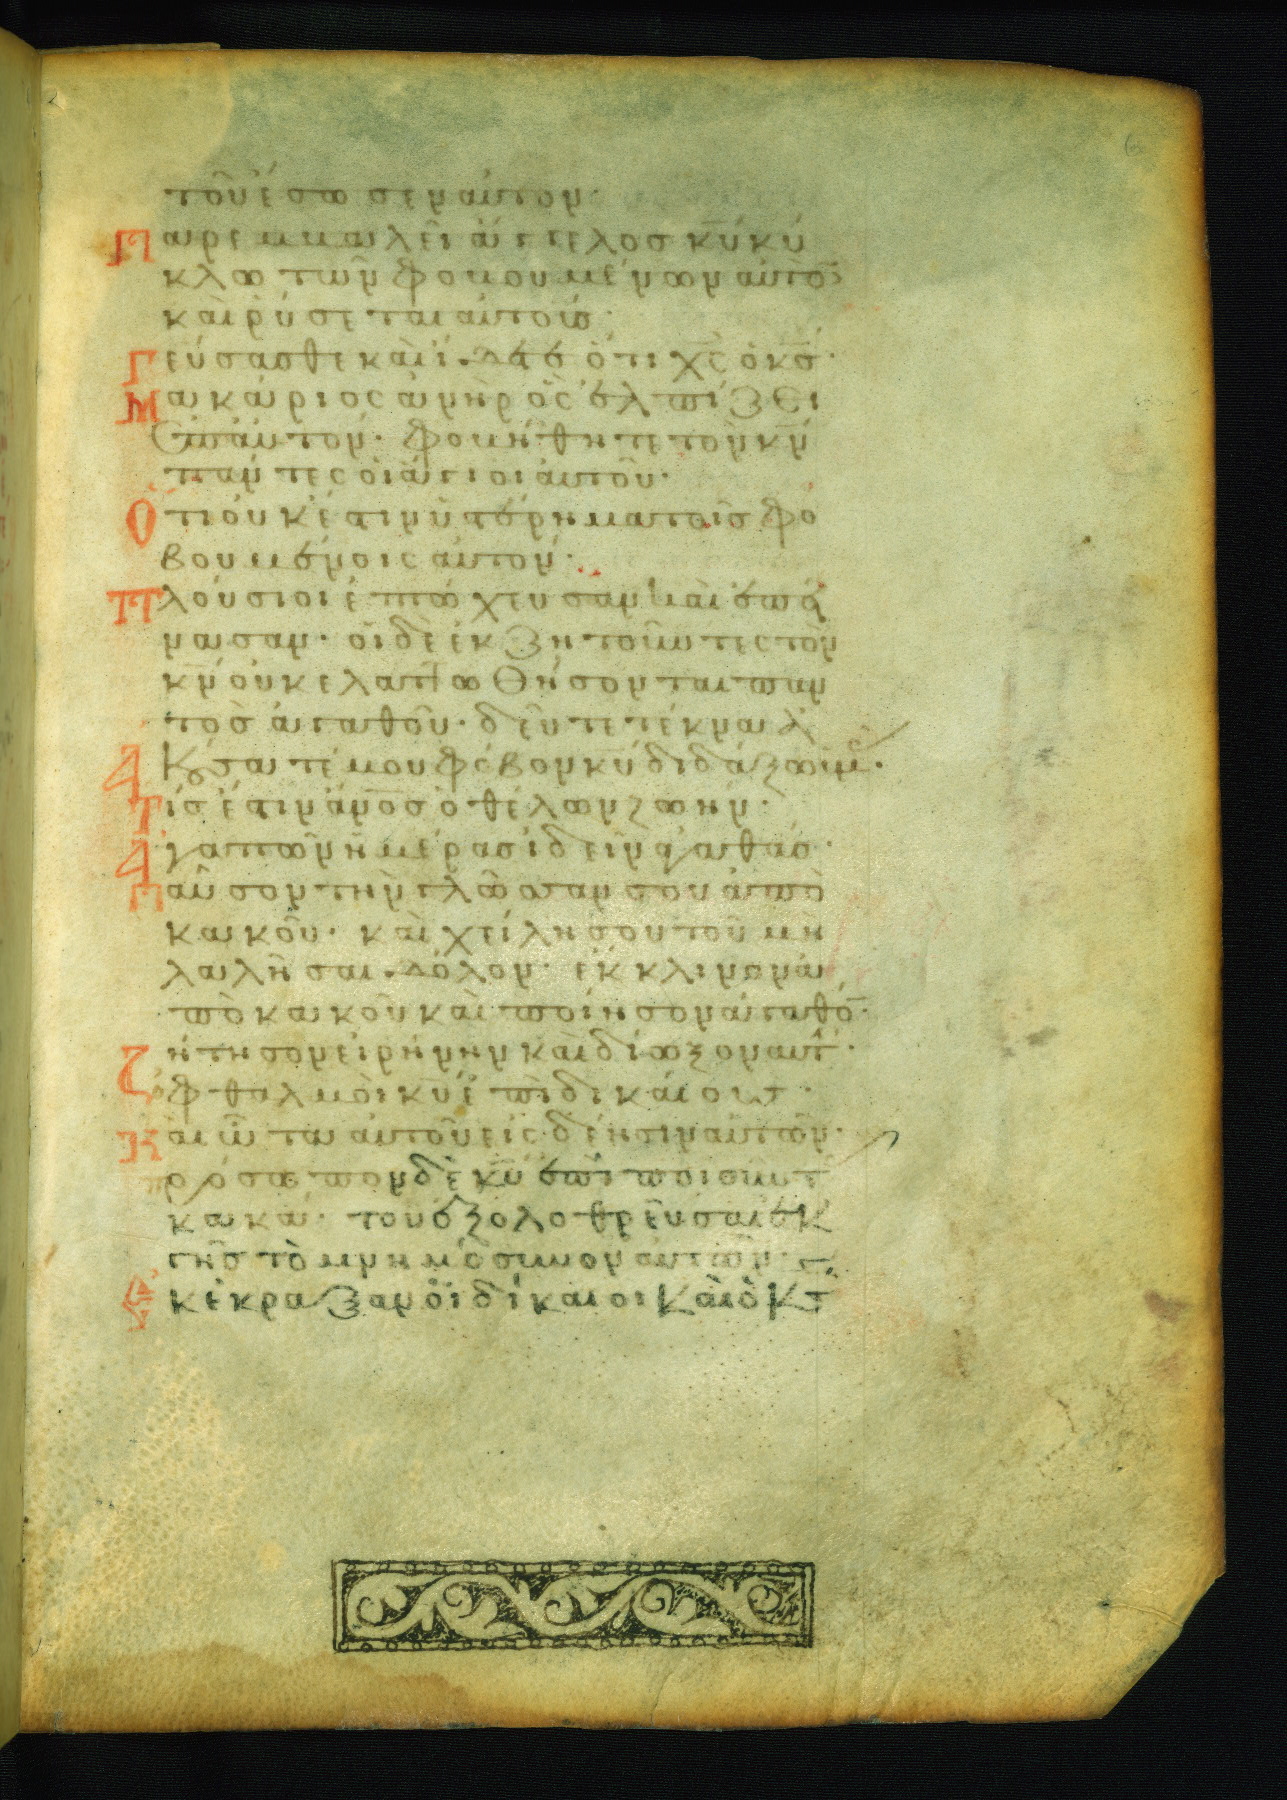 τοῦ ἔσωσεν αὐτὸν·
Παρεμβαλεῖ ἄγγελος κυ κύ
κλω τῶν φοβουμένων αὐτὸ
καὶ ῥύσεται αὐτούς·
Γεύσασθε καὶ ἴδετε ὅτι χς ὁ κς·
Μακάριος ἀνὴρ ὃς ἐλπίζει
ἐπ' αὐτον· φοβήθητε τὸν κν
πάντες οἱ ἅγιοι αὐτοῦ·
Ὅτι οὐκ ἔστιν ὑστέρημα τοῖς φο
βουμένοις αὐτόν·
Πλούσιοι ἐπτώχευσαν καὶ ἐπεί
νασαν· οἱ δὲ ἐκζητοῦντες τὸν
κν οὐκ ελαττωθήσονται παν
τὸς ἀγαθοῦ· δεῦτε τέκνα
Ἀκούσατέ μου φόβον κυ διδάξω ὑμ·
Τίς ἐστιν ἄνος ὁ θέλων ζωήν·
Ἀγαπῶν ἡμέρας ἰδεῖν ἀγαθάς·
Παῦσον τὴν γλῶσσαν σου ἀπὸ
κακοῦ· καὶ χείλη σου τοῦ μὴ
λαλῆσαι δόλον· ἔκκλινον ἀ
πὸ κακοῦ καὶ ποίησον ἀγαθό·
Ζήτησον εἰρήνην καὶ δίωξον αυτ·
ὀφθαλμοὶ κυ ἐπὶ δικαίους·
Καὶ ὦτα αὐτοῦ εἰς δέησιν αὐτῶν·
πρόσωπον δὲ κυ ἐπὶ ποιοῦντ
κακά· τοῦ ἐξολοθρεῦσαι ἐκ
γῆς τὸ μνημόσυνον αὐτῶν·
Ἐκέκραξαν οἱ δίκαιοι καὶ ὁ κς